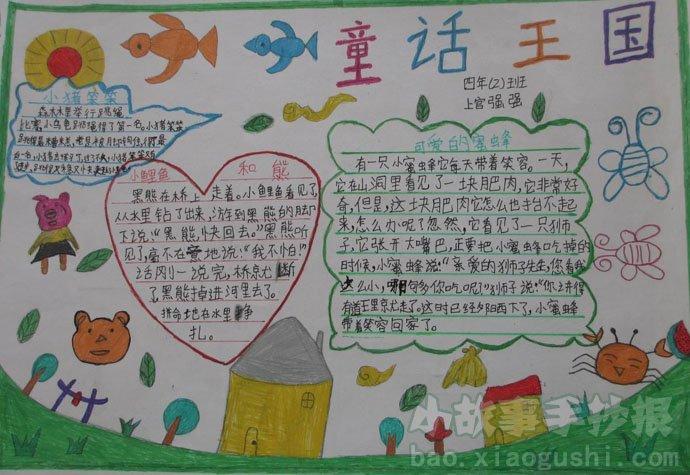 童话王国
四年(2)班
上官强强
小猪笨笨
森林里举行跳绳
比赛小乌龟跳绳得了第一名。小猪笨笨
小鲤鱼和熊
黑熊在桥上走着。小鲤鱼看见了
从水里钻了出来,游到黑熊的脚
下说:“黑熊,快回去。”黑熊听
见,毫不在意地说:“我不怕!”
话刚一说完,桥就断
了黑熊掉进河里去了。
拼命地在水里挣
扎。
可爱的蜜蜂
有一只小蜜蜂它每天带着笑容。一天,
它在山洞里看见了一块肥肉,它非常好
奇,但是,这块肥肉它怎么也抬不起
来,怎么办呢?忽然,它看见了一只狮
子,它张开大嘴巴,正要把小蜜蜂吃掉的
时候,小蜜蜂说:“亲爱的狮子先生,您看我
这么小,哪够你吃呢?”狮子说:“你讲得
有道王里就走了。这时已经夕阳西下了,小蜜蜂
带着笑容回家了。
小故事手抄报
bao.xiaogushi.com